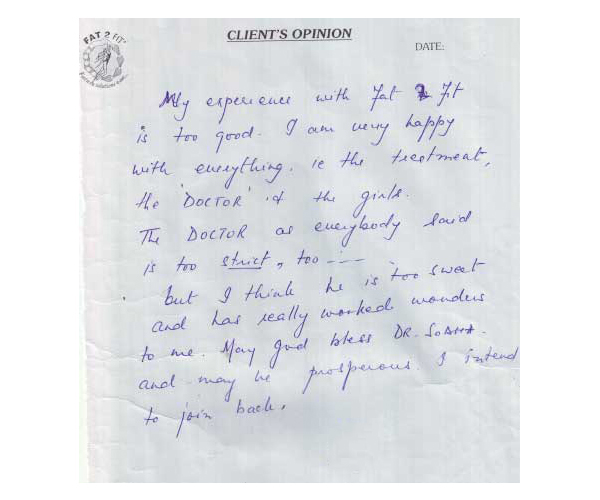 FAT 2 FIT
CLIENT'S OPINION
DATE:
My experience with Fat 2 Fit
is too good. I am very happy
with everything. ie the treetment,
the 'DOCTOR' & the girls.
The DOCTOR as everybody said
is too strict, too ----
but I think he is too sweet
and has really worked wonders
to me. May god bless DR.
and may he prosperous. I intend
to join back.